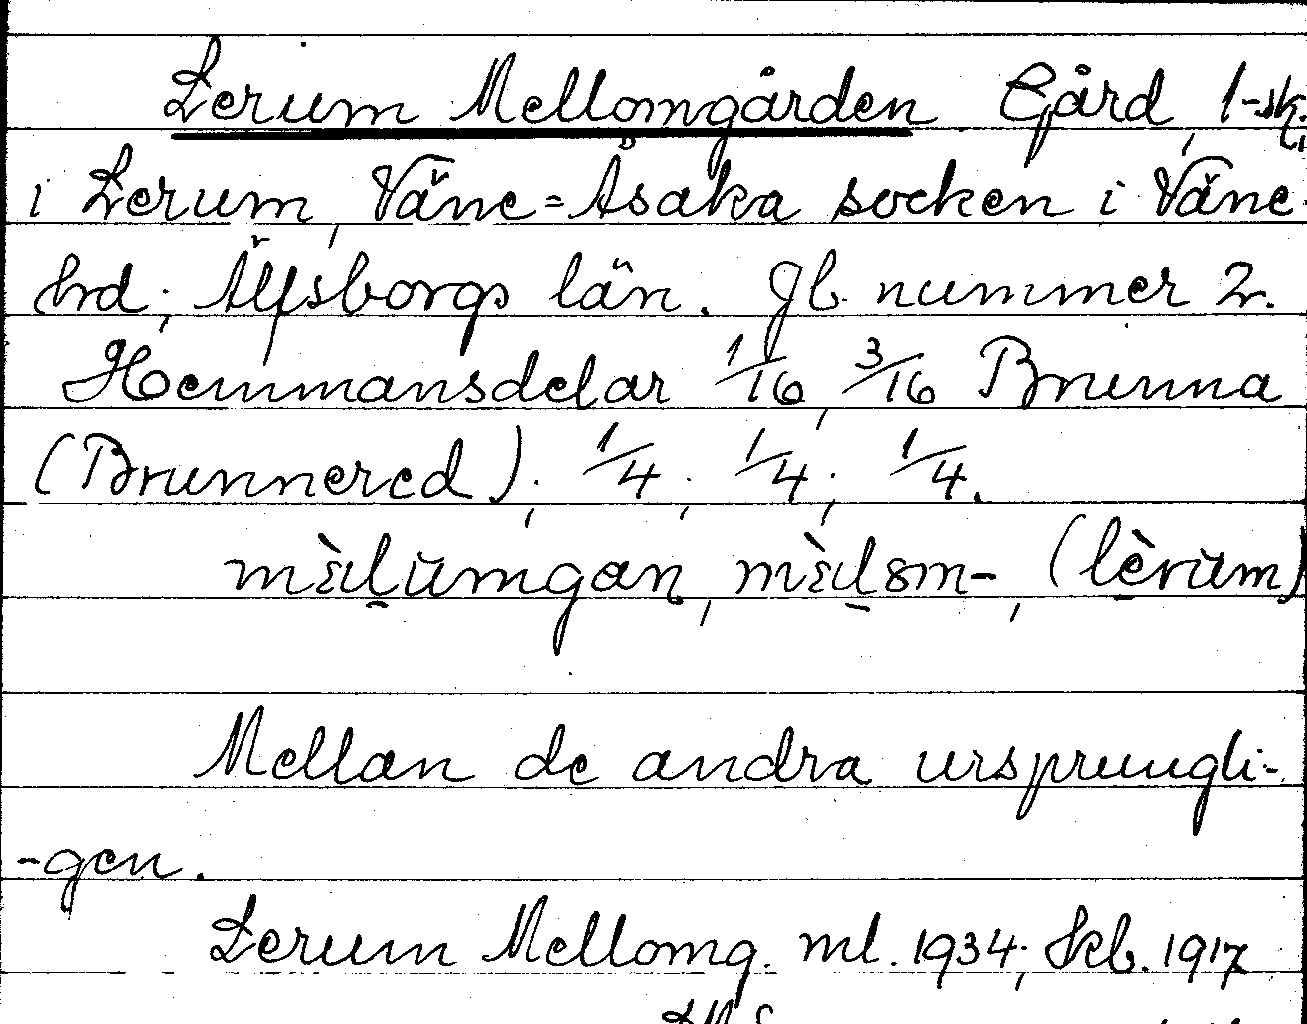 Lerum Mellomgården Gård, 1-sk.
i Lerum, Väne=Åsaka socken i Väne
hrd; Älfsborgs län. Jb. nummer 2.
Hemmansdelar 1/16, 3/16 Brunna
(Brunnered); 1/4; 1/4; 1/4.
mɛ̀lŭmgan, mɛ̀lɜm-, (lèrŭm)
Mellan de andra ursprungli-
-gen.
Lerum Mellomg. ml. 1934; Skb. 1917